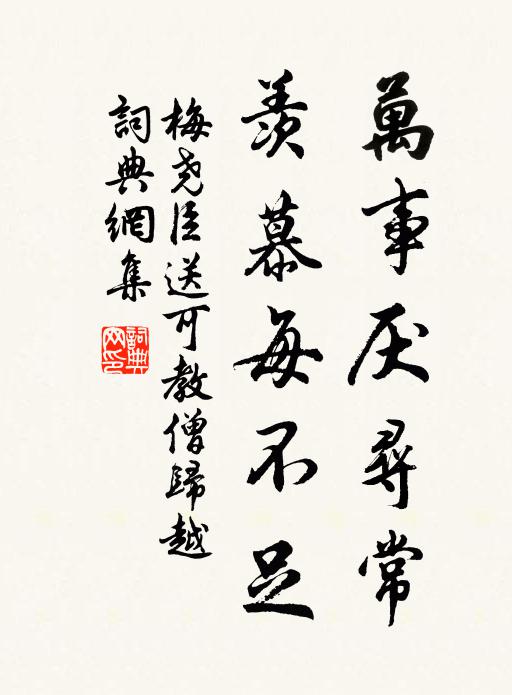 萬事厌尋常
羨慕每不足
梅尧臣送可教僧歸越
詞典網集
詞典网印